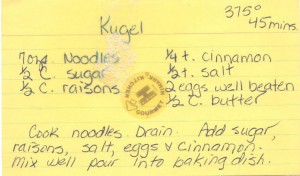 Kugel
375°
45 mins.
7 oz. Noodles
½ C. sugar
½ C. raisons
¼ t. Cinnamon
½ t. salt
2 eggs well beaten
½ C. butter
Cook noodles. Drain. Add sugar,
raisons, salt, eggs & Cinnamon.
mix well pour into baking dish.